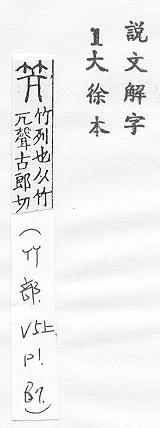 說文解字
1大徐本
笐 竹列也从竹
亢聲古郎切
(竹部. V5上 P1. B7.)